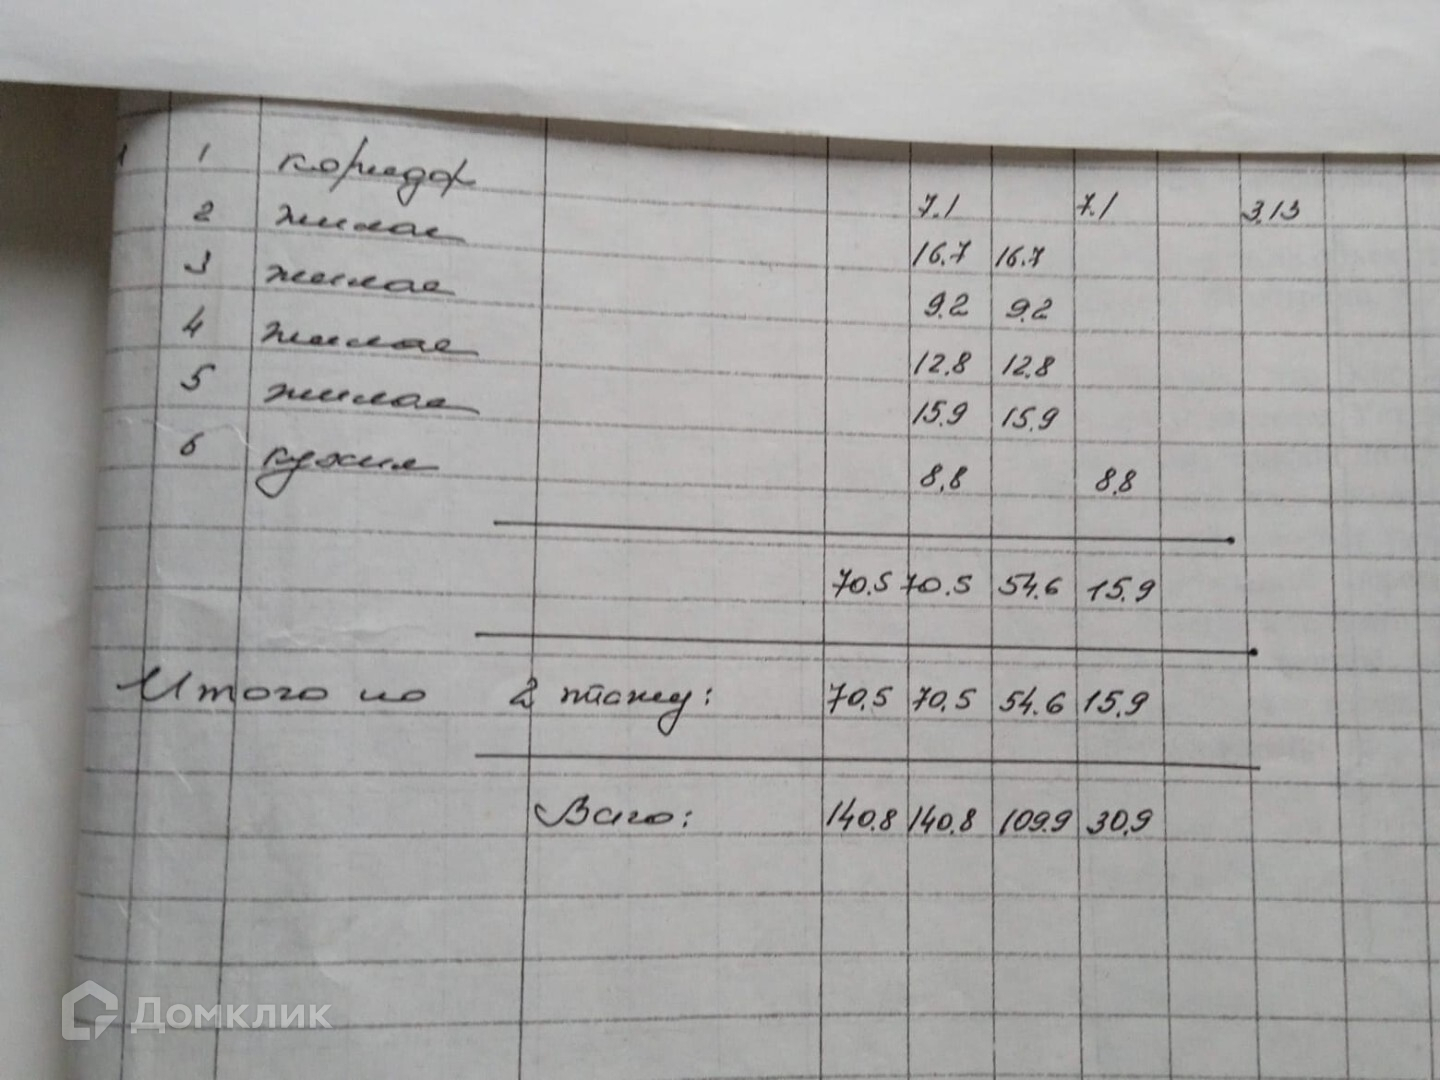 1 коридор 7.1 7.1 3.13
2 жилая 16.7 16.7
3 жилая 9.2 9.2
4 жилая 12.8 12.8
5 жилая 15.9 15.9
6 кухня 8.8 8.8
70.5 70.5 54.6 15.9
Итого по 2 этажу: 70.5 70.5 54.6 15.9
Всего: 140.8 140.8 109.9 30.9
Домклик